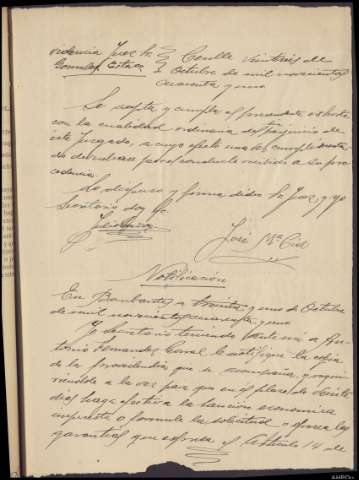 Juez Sr. Sevilla veintiseis de
Gonzalez Octubre de mil novecientos
cuarenta y uno
Se acepta y cumpla el precedente exhorto
con la cualidad ordinaria del perjuicio de
este Juzgado, a cuyo efecto una vez cumplimenta-
do devuelvase por el conducto recibido a su pro-
cedencia
Lo dispuso y firma dicho Sr. Juez, y yo
Secretario doy fe
José Mª Cid
Notificación
En a treinta y uno de Octubre
de mil novecientos cuarenta y uno
Yo Secretario teniendo ante mí a An-
tonio Fernandez le notifiqué la copia
de la providencia que se acompaña, y requi-
riendole a la vez para que en el plazo de veinte
dias haga efectiva la sanción economica
impuesta o formule la solicitud u ofrezca las
garantias que expresa el Artículo 14 de